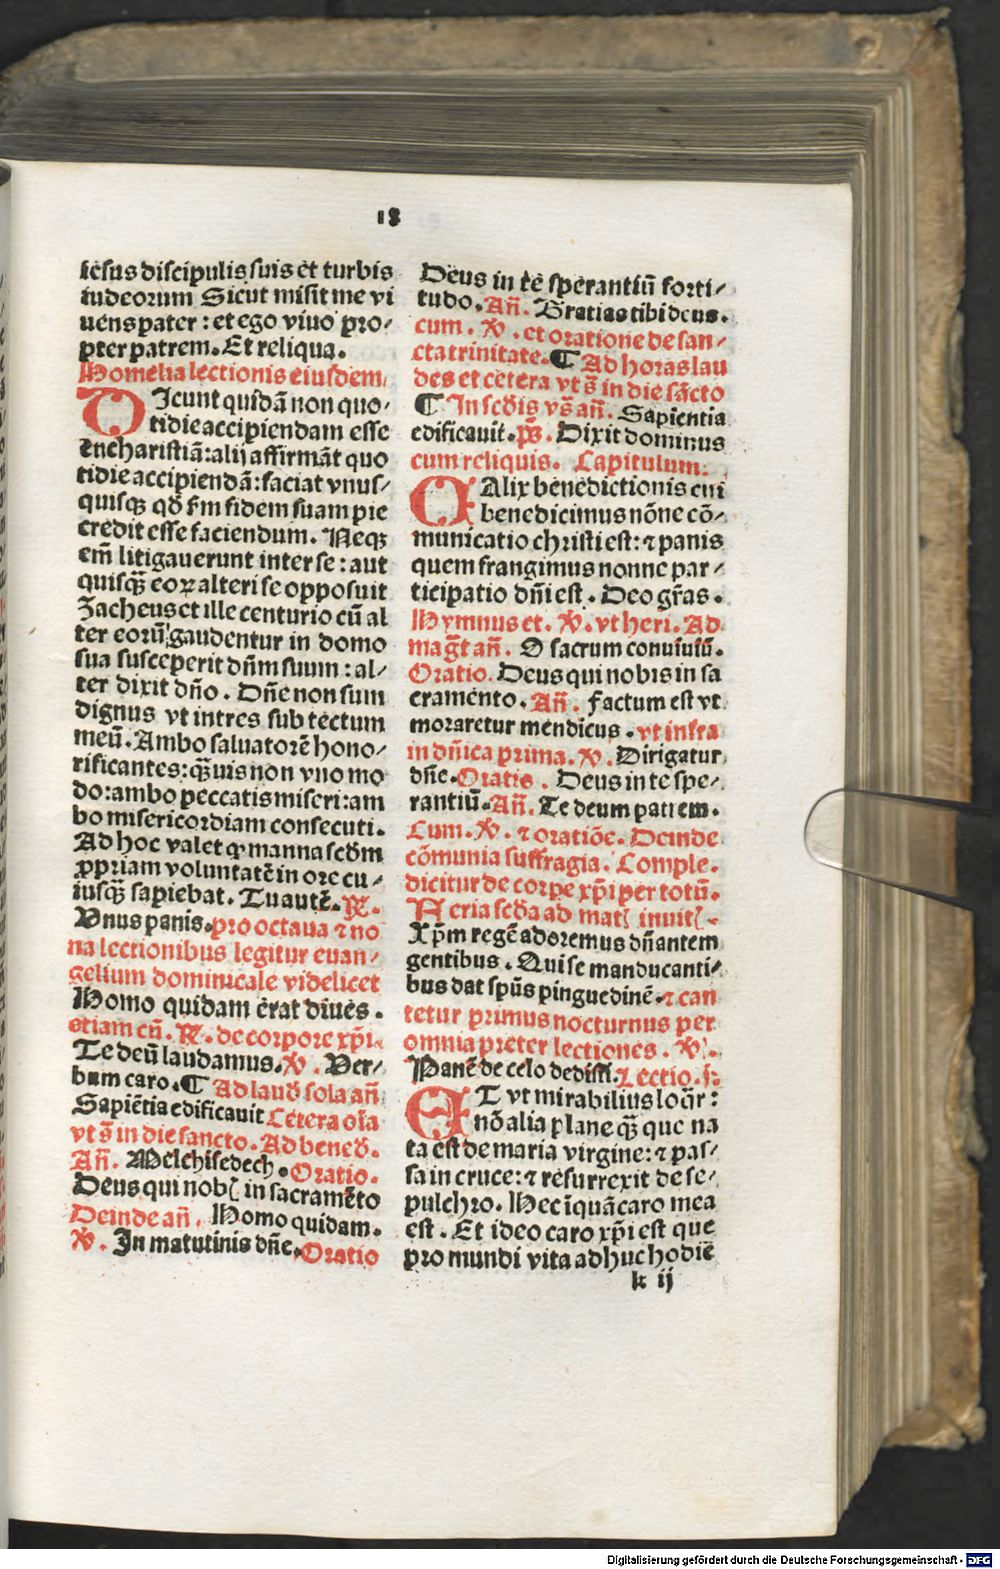 18
iesus discipulis suis et turbis
iudeorum Sicut misit me vi
uens pater : et ego viuo pro⸗
pter patrem. Et reliqua.
Homelia lectionis eiusdem
DIcunt quidā non quo⸗
tidie accipiendam esse
eucharistiā: alij affirmāt quo
tidie accipiendā: faciat vnus⸗
quisqꝫ qđ ẜm fidem suam pie
credit esse faciendum. Neqꝫ
em̄ litigauerunt inter se : aut
quisqꝫ̄ eoꝝ alteri se opposuit
Zacheus et ille centurio cū al
ter eorū gaudentur in domo
sua susceperit dn̄m suum : al⸗
ter dixit dn̄o . Dn̄e non sum
dignus vt intres sub tectum
meū. Ambo saluatorē hono⸗
rificantes: qꝫ̄uis non vno mo
do: ambo peccatis miseri: am
bo misericordiam consecuti.
Ad hoc valet ꝙ manna scd̄m
ꝓpriam voluntatē in ore cu⸗
iusqꝫ̄ sapiebat. Tu autē. ℞.
Vnus panis. pro octaua ⁊ no
na lectionibus legitur euan⸗
gelium dominicale videlicet
Homo quidam erat diues .
etiam cū. ℞. de corpore xp̄i.
Te deū laudamus. ℣. Ver⸗
bum caro. ¶ Ad laud̄ sola an̄
Sapiētia edificauit Cetera oīa
vt s̄ in die sancto. Ad bened̄.
An̄. Melchisedech . Oratio.
Deus qui nobꝭ in sacramēto
Deinde an̄. Homo quidam.
℣. In matutinis dn̄e. Oratio
Deus in te sperantiū forti⸗
tudo. An̄. Gratias tibi deus.
cum . ℣. et oratione de san⸗
cta trinitate. ¶ Ad horas lau
des et cetera vt s̄ in die sācto
¶ In scd̄is vs̄ an̄. Sapientia
edificauit. ps̄. Dixit dominus
cum reliquis. Capitulum.
CAlix benedictionis cui
benedicimus nōne cō⸗
municatio christi est: ⁊ panis
quem frangimus nonne par⸗
ticipatio dn̄i est . Deo gr̄as .
Hymnus et . ℣. vt heri. Ad
maḡt an̄. O sacrum conuiuiū.
Oratio. Deus qui nobis in sa
cramento. An̄. Factum est vt
moraretur mendicus . vt infra
in dn̄ica prima. ℣. Dirigatur
dn̄e. Oratis . Deus in te spe⸗
rantiū. An̄. Te deum patrem.
Cum. ℣. ⁊ oratiōe. Deinde
cōmunia suffragia. Comple.
dicitur de corpe xp̄i per totū.
Feria scd̄a ad matꝭ inuitꝭ.
Xp̄m regē adoremus dn̄antem
gentibus . Qui se manducanti⸗
bus dat sp̄us pinguedinē. ⁊ can
tetur primus nocturnus per
omnia preter lectiones . ℣.
Panē de celo dedisti. Lectio .j.
ET vt mirabilius loq̄r :
nō alia plane qꝫ̄ que na
ta est de maria virgine: ⁊ pas⸗
sa in cruce: ⁊ resurrexit de se⸗
pulchro. Hec īquā caro mea
est . Et ideo caro xp̄i est que
pro mundi vita adhuc hodiē
k ij
Digitalisierung gefördert durch die Deutsche Forschungsgemeinschaft - DFG